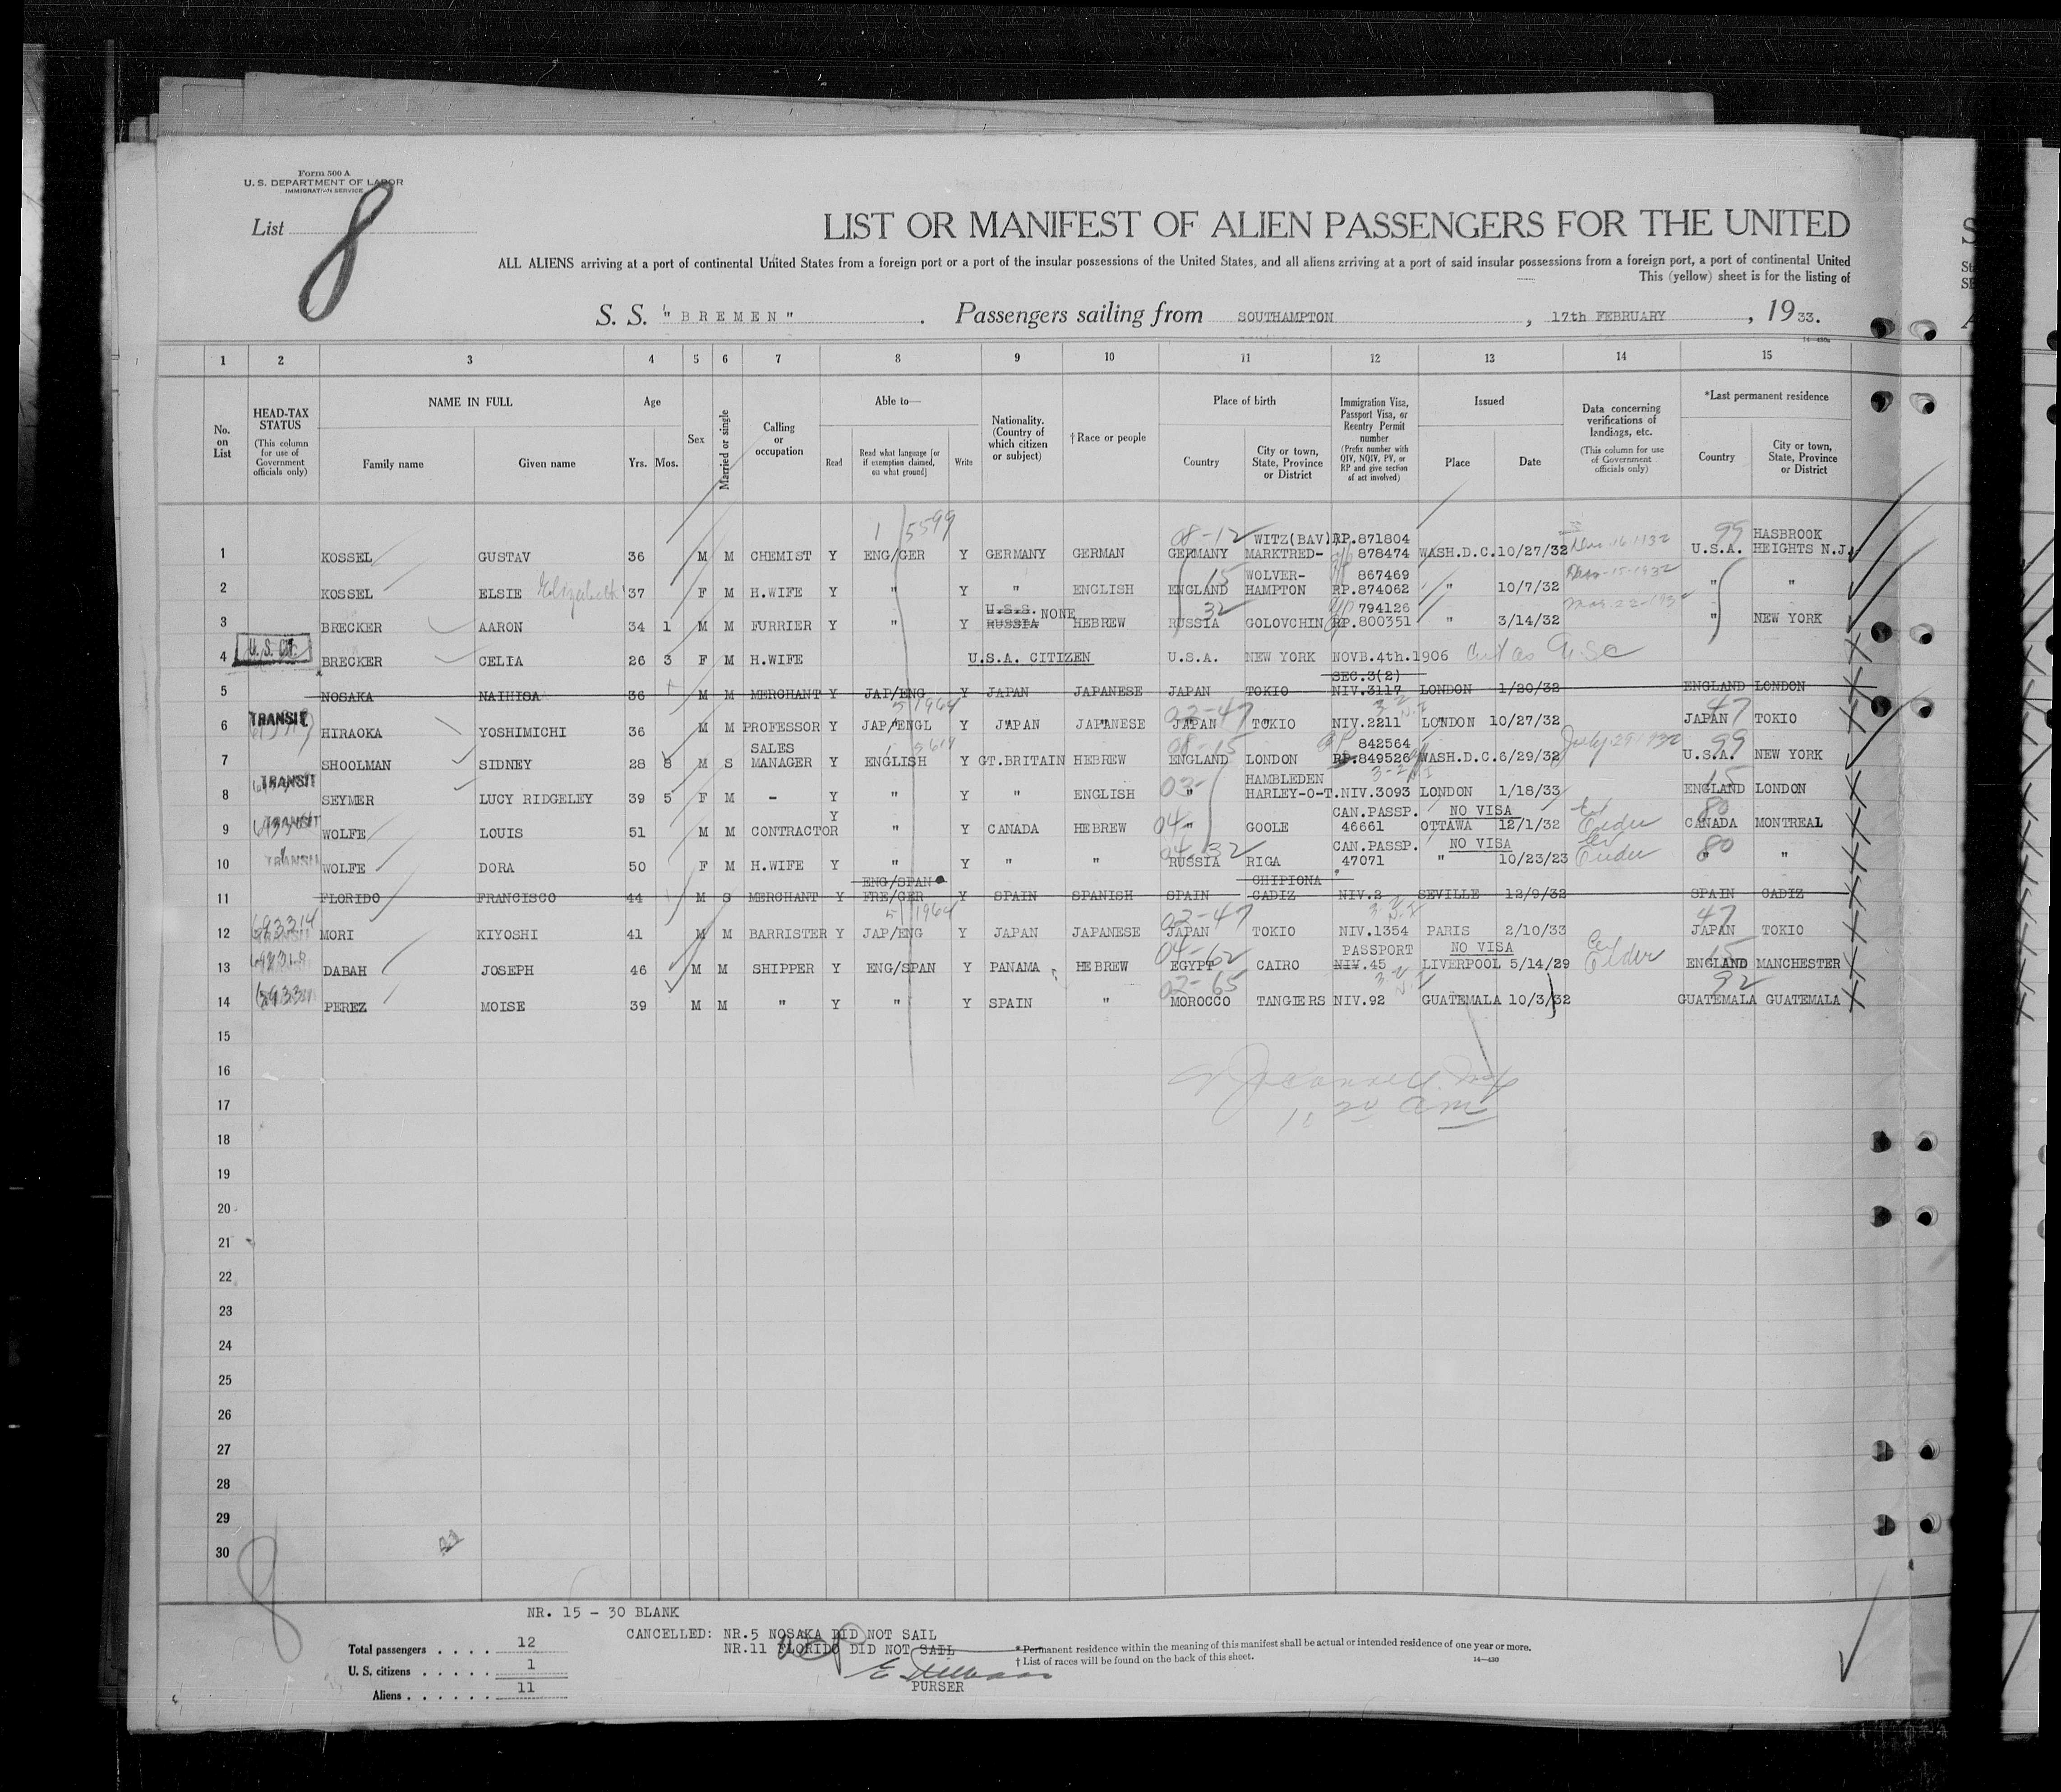 Form 500 A
U. S. DEPARTMENT OF LABOR
IMMIGRATION SERVICE
List 8
LIST OR MANIFEST OF ALIEN PASSENGERS FOR THE UNITED
ALL ALIENS arriving at a port of continental United States from a foreign port or a port of the insular possessions of the United States, and all aliens arriving at a port of said insular possessions from a foreign port, a port of continental United
This (yellow) sheet is for the listing of
S. S. "BREMEN". Passengers sailing from SOUTHAMPTON, 17th FEBRUARY, 1933.
1 2 3 4 5 6 7 8 9 10 11 12 13 14 15
No. on List
HEAD-TAX STATUS (This column for use of Government officials only)
NAME IN FULL Family name Given name
Age Yrs. Mos.
Sex
Married or single
Calling or occupation
Able to— Read Read what language [or if exemption claimed, on what ground] Write
Nationality. (Country of which citizen or subject)
†Race or people
Place of birth Country City or town, State, Province or District
Immigration Visa, Passport Visa, or Reentry Permit number (Prefix number with QIV, NQIV, PV, or RP and give section of act involved)
Issued Place Date
Data concerning verifications of landings, etc. (This column for use of Government officials only)
*Last permanent residence Country City or town, State, Province or District
1 5599
1 KOSSEL GUSTAV 36 M M CHEMIST Y ENG/GER Y GERMANY GERMAN 08-12 GERMANY WITZ(BAV) MARKTRED- RP.871804 878474 WASH.D.C. 10/27/32 99 U.S.A. HASBROOK HEIGHTS N.J.
2 KOSSEL ELSIE Elizabeth 37 F M H.WIFE Y " Y " ENGLISH 15 ENGLAND WOLVER-HAMPTON 867469 RP.874062 " 10/7/32 " "
3 BRECKER AARON 34 1 M M FURRIER Y " Y U.S.S. RUSSIA NONE HEBREW 32 RUSSIA GOLOVCHIN 794126 RP.800351 " 3/14/32 " NEW YORK
U.S. Cit.
4 BRECKER CELIA 26 3 F M H.WIFE U.S.A. CITIZEN U.S.A. NEW YORK NOVB.4th.1906
5 NOSAKA NAIHISA 36 M M MERCHANT Y JAP/ENG Y JAPAN JAPANESE JAPAN TOKIO SEC.3(2) NIV.3117 LONDON 1/20/32 ENGLAND LONDON
5 1964
6 TRANSIT HIRAOKA YOSHIMICHI 36 M M PROFESSOR Y JAP/ENGL Y JAPAN JAPANESE 02-47 JAPAN TOKIO NIV.2211 LONDON 10/27/32 47 JAPAN TOKIO
7 SHOOLMAN SIDNEY 28 8 M S SALES MANAGER Y ENGLISH Y GT.BRITAIN HEBREW 08-15 ENGLAND LONDON 842564 RP.849526 WASH.D.C. 6/29/32 July 29 1932 99 U.S.A. NEW YORK
8 TRANSIT SEYMER LUCY RIDGELEY 39 5 F M - Y " Y " ENGLISH " HAMBLEDEN HARLEY-O-T. NIV.3093 LONDON 1/18/33 15 ENGLAND LONDON
9 TRANSIT WOLFE LOUIS 51 M M CONTRACTOR Y " Y CANADA HEBREW 04- " GOOLE CAN.PASSP. 46661 NO VISA OTTAWA 12/1/32 80 CANADA MONTREAL
10 TRANSIT WOLFE DORA 50 F M H.WIFE Y " Y " " 04-32 RUSSIA RIGA CAN.PASSP. 47071 NO VISA " 10/23/23 80 " "
11 FLORIDO FRANCISCO 44 M S MERCHANT Y ENG/SPAN FRE/GER Y SPAIN SPANISH SPAIN CHIPIONA CADIZ NIV.2 SEVILLE 12/9/32 SPAIN CADIZ
5 1964
12 MORI KIYOSHI 41 M M BARRISTER Y JAP/ENG Y JAPAN JAPANESE 02-47 JAPAN TOKIO NIV.1354 PARIS 2/10/33 47 JAPAN TOKIO
13 DABAH JOSEPH 46 M M SHIPPER Y ENG/SPAN Y PANAMA HEBREW 04-62 EGYPT CAIRO PASSPORT NIV.45 NO VISA LIVERPOOL 5/14/29 15 ENGLAND MANCHESTER
14 PEREZ MOISE 39 M M " Y " Y SPAIN " 02-65 MOROCCO TANGIERS NIV.92 GUATEMALA 10/3/32 92 GUATEMALA GUATEMALA
15
16
17
18
19
20
21
22
23
24
25
26
27
28
29
30
8
NR. 15 - 30 BLANK
CANCELLED: NR.5 NOSAKA DID NOT SAIL
NR.11 FLORIDO DID NOT SAIL
PURSER
Total passengers . . . . 12
U. S. citizens . . . . . 1
Aliens . . . . . . 11
* Permanent residence within the meaning of this manifest shall be actual or intended residence of one year or more.
† List of races will be found on the back of this sheet.
14—430